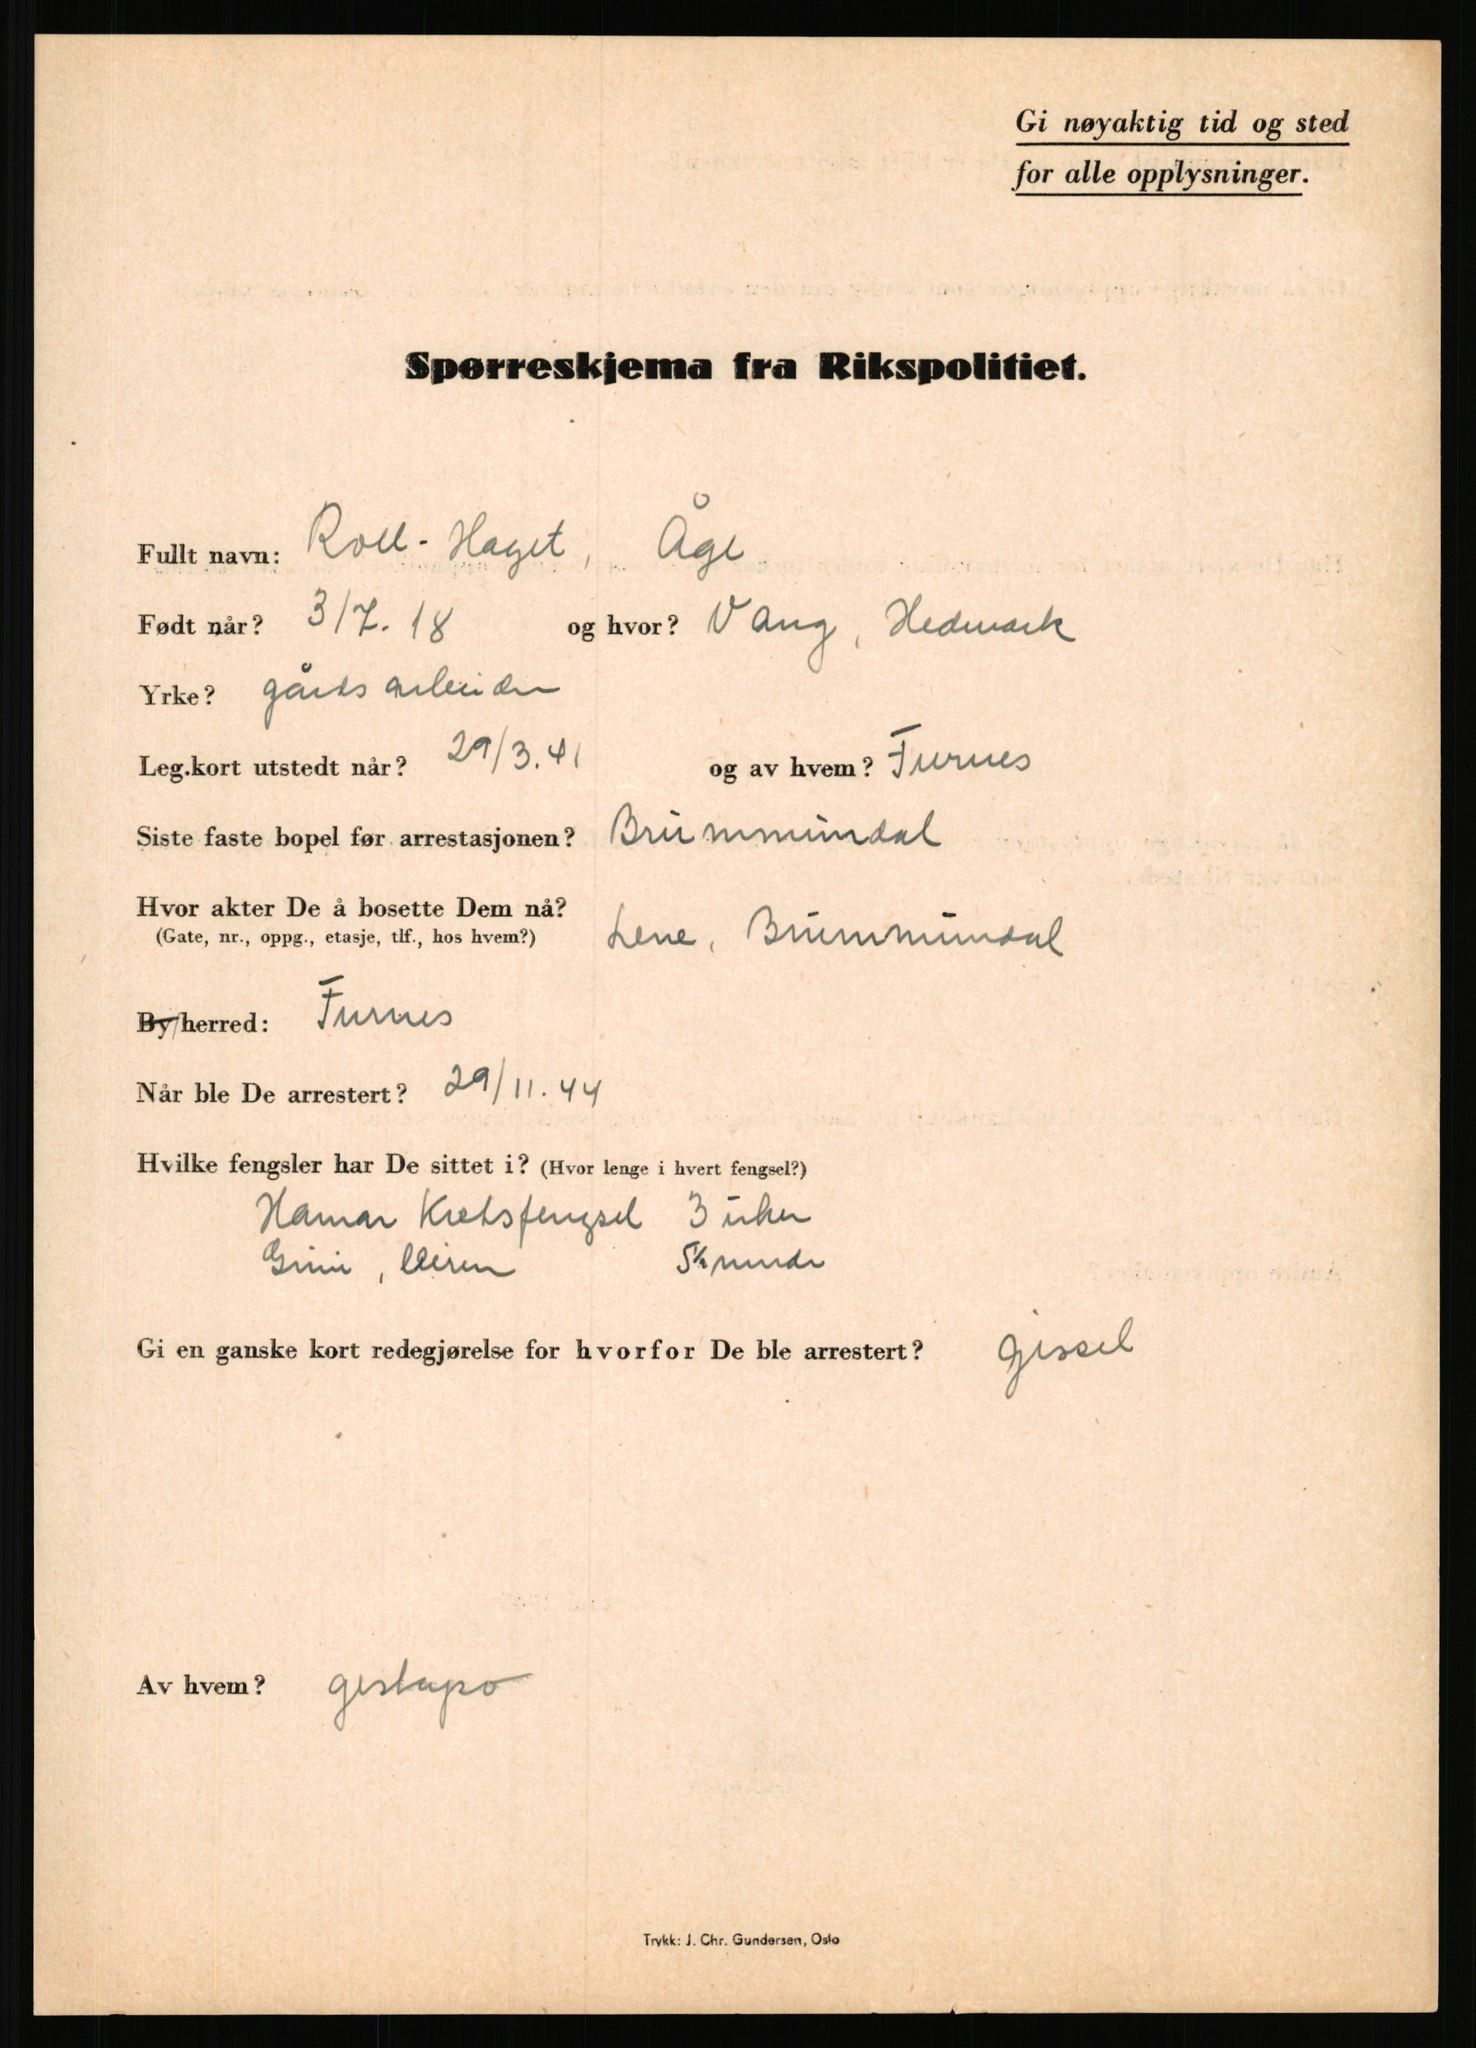 Gi nøyaktig tid og sted
for alle opplysninger.
Spørreskjema fra Rikspolitiet.
Fullt navn: Roll-Haget, Åge
Født når? 3/7.18 og hvor? Vang, Hedmark
Yrke? gårdsarbeider
Leg.kort utstedt når? 29/3.41 og av hvem? Furnes
Siste faste bopel før arrestasjonen? Brummundal
Hvor akter De å bosette Dem nå?
(Gate, nr., oppg., etasje, tlf., hos hvem?) Lene, Brummundal
By/herred: Furnes
Når ble De arrestert? 29/11.44
Hvilke fengsler har De sittet i? (Hvor lenge i hvert fengsel?)
Hamar Kretsfengsel 3 uker
Grini, 5½ mndr
Gi en ganske kort redegjørelse for hvorfor De ble arrestert? gissel
Av hvem? gestapo
Trykk: J. Chr. Gundersen, Oslo